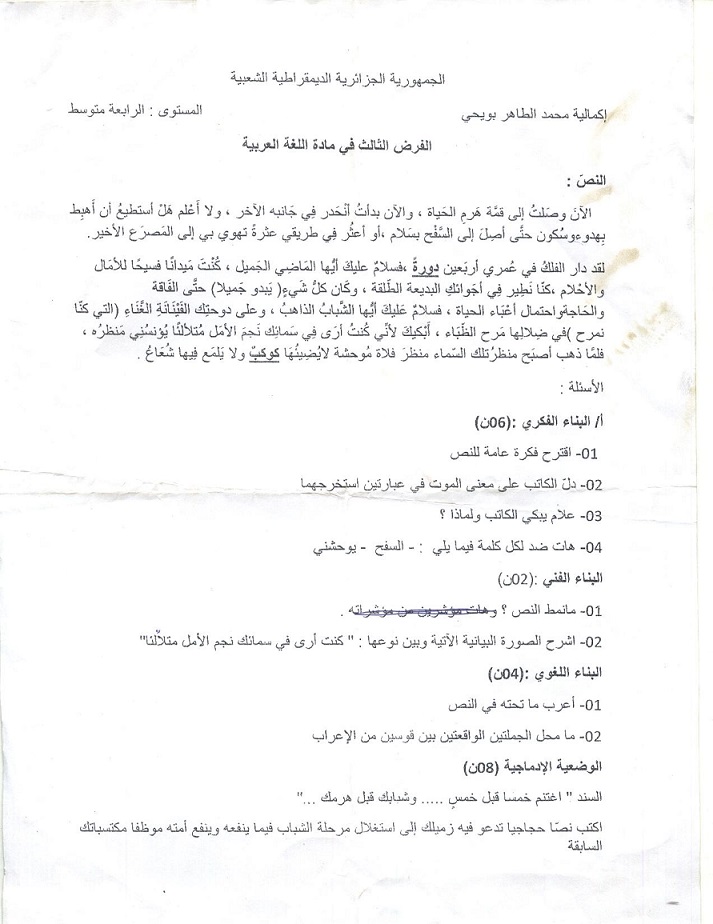 الجمهورية الجزائرية الديمقراطية الشعبية
إكمالية محمد الطاهر بويحي المستوى : الرابعة متوسط
الفرض الثالث في مادة اللغة العربية
النصّ :
الآنَ وصَلتُ إلى قمَّة هَرمِ الحَياة ، والآن بدأتُ أنْحَدر فِي جَانبه الآخر ، ولا أَعْلم هَلْ أستطيعُ أن أَهبِط
بِهدوءوسُكون حتَّى أصِلَ إلى السَّفْح بسَلام ،أو أعثُر فِي طريقي عثرةً تهوي بي إلى المَصرَع الأخير.
لقد دار الفلكُ في عُمري أربَعين دورةً ،فسلامٌ عليكَ أيُّها المَاضِي الجَميل ، كُنْتَ مَيدانًا فسيحًا للآمَال
والأحْلام ،كنّا نَطِير فِي أجوائكِ البديعة الطّلقة ، وكَان كلُّ شَيءٍ( يَبدو جَميلا) حتَّى الفَاقة
والحَاجةواحتمال أعْبَاء الحياة ، فسلامٌ عَليكَ أيُّها الشَّبابُ الذاهبُ ، وعلى دوحتِك الفَيْنَانَةِ الغَّنَاءِ (التي كنّا
نمرح )في ضِلالِها مَرح الظّبَاء ، أَبْكيكَ لأنّي كُنتُ أرَى فِي سَمائِك نَجمَ الأمَل مُتلألئًا يُؤنسُني مَنظرُه ،
فلمَّا ذهب أصبَح منظرُتلك السّماء منظرَ فلاة مُوحشة لايُضِيئُهَا كوكبٌ ولا يَلمَع فِيها شُعَاعُ .
الأسئلة :
أ/ البناء الفكري :(06ن)
01- اقترح فكرة عامة للنص
02- دلّ الكاتب على معنى الموت في عبارتين استخرجهما
03- علام يبكي الكاتب ولماذا ؟
04- هات ضد لكل كلمة فيما يلي : - السفح - يوحشني
البناء الفني :(02ن)
01- مانمط النص ؟ وهات مؤشرين من مؤشراته .
02- اشرح الصورة البيانية الآتية وبين نوعها : " كنت أرى في سمائك نجم الأمل متلألئا"
البناء اللغوي :(04ن)
01- أعرب ما تحته في النص
02- ما محل الجملتين الواقعتين بين قوسين من الإعراب
الوضعية الإدماجية (08ن)
السند " اغتنم خمسا قبل خمسٍ ..... وشبابك قبل هرمك ..."
اكتب نصّا حجاجيا تدعو فيه زميلك إلى استغلال مرحلة الشباب فيما ينفعه وينفع أمته موظفا مكتسباتك
السابقة